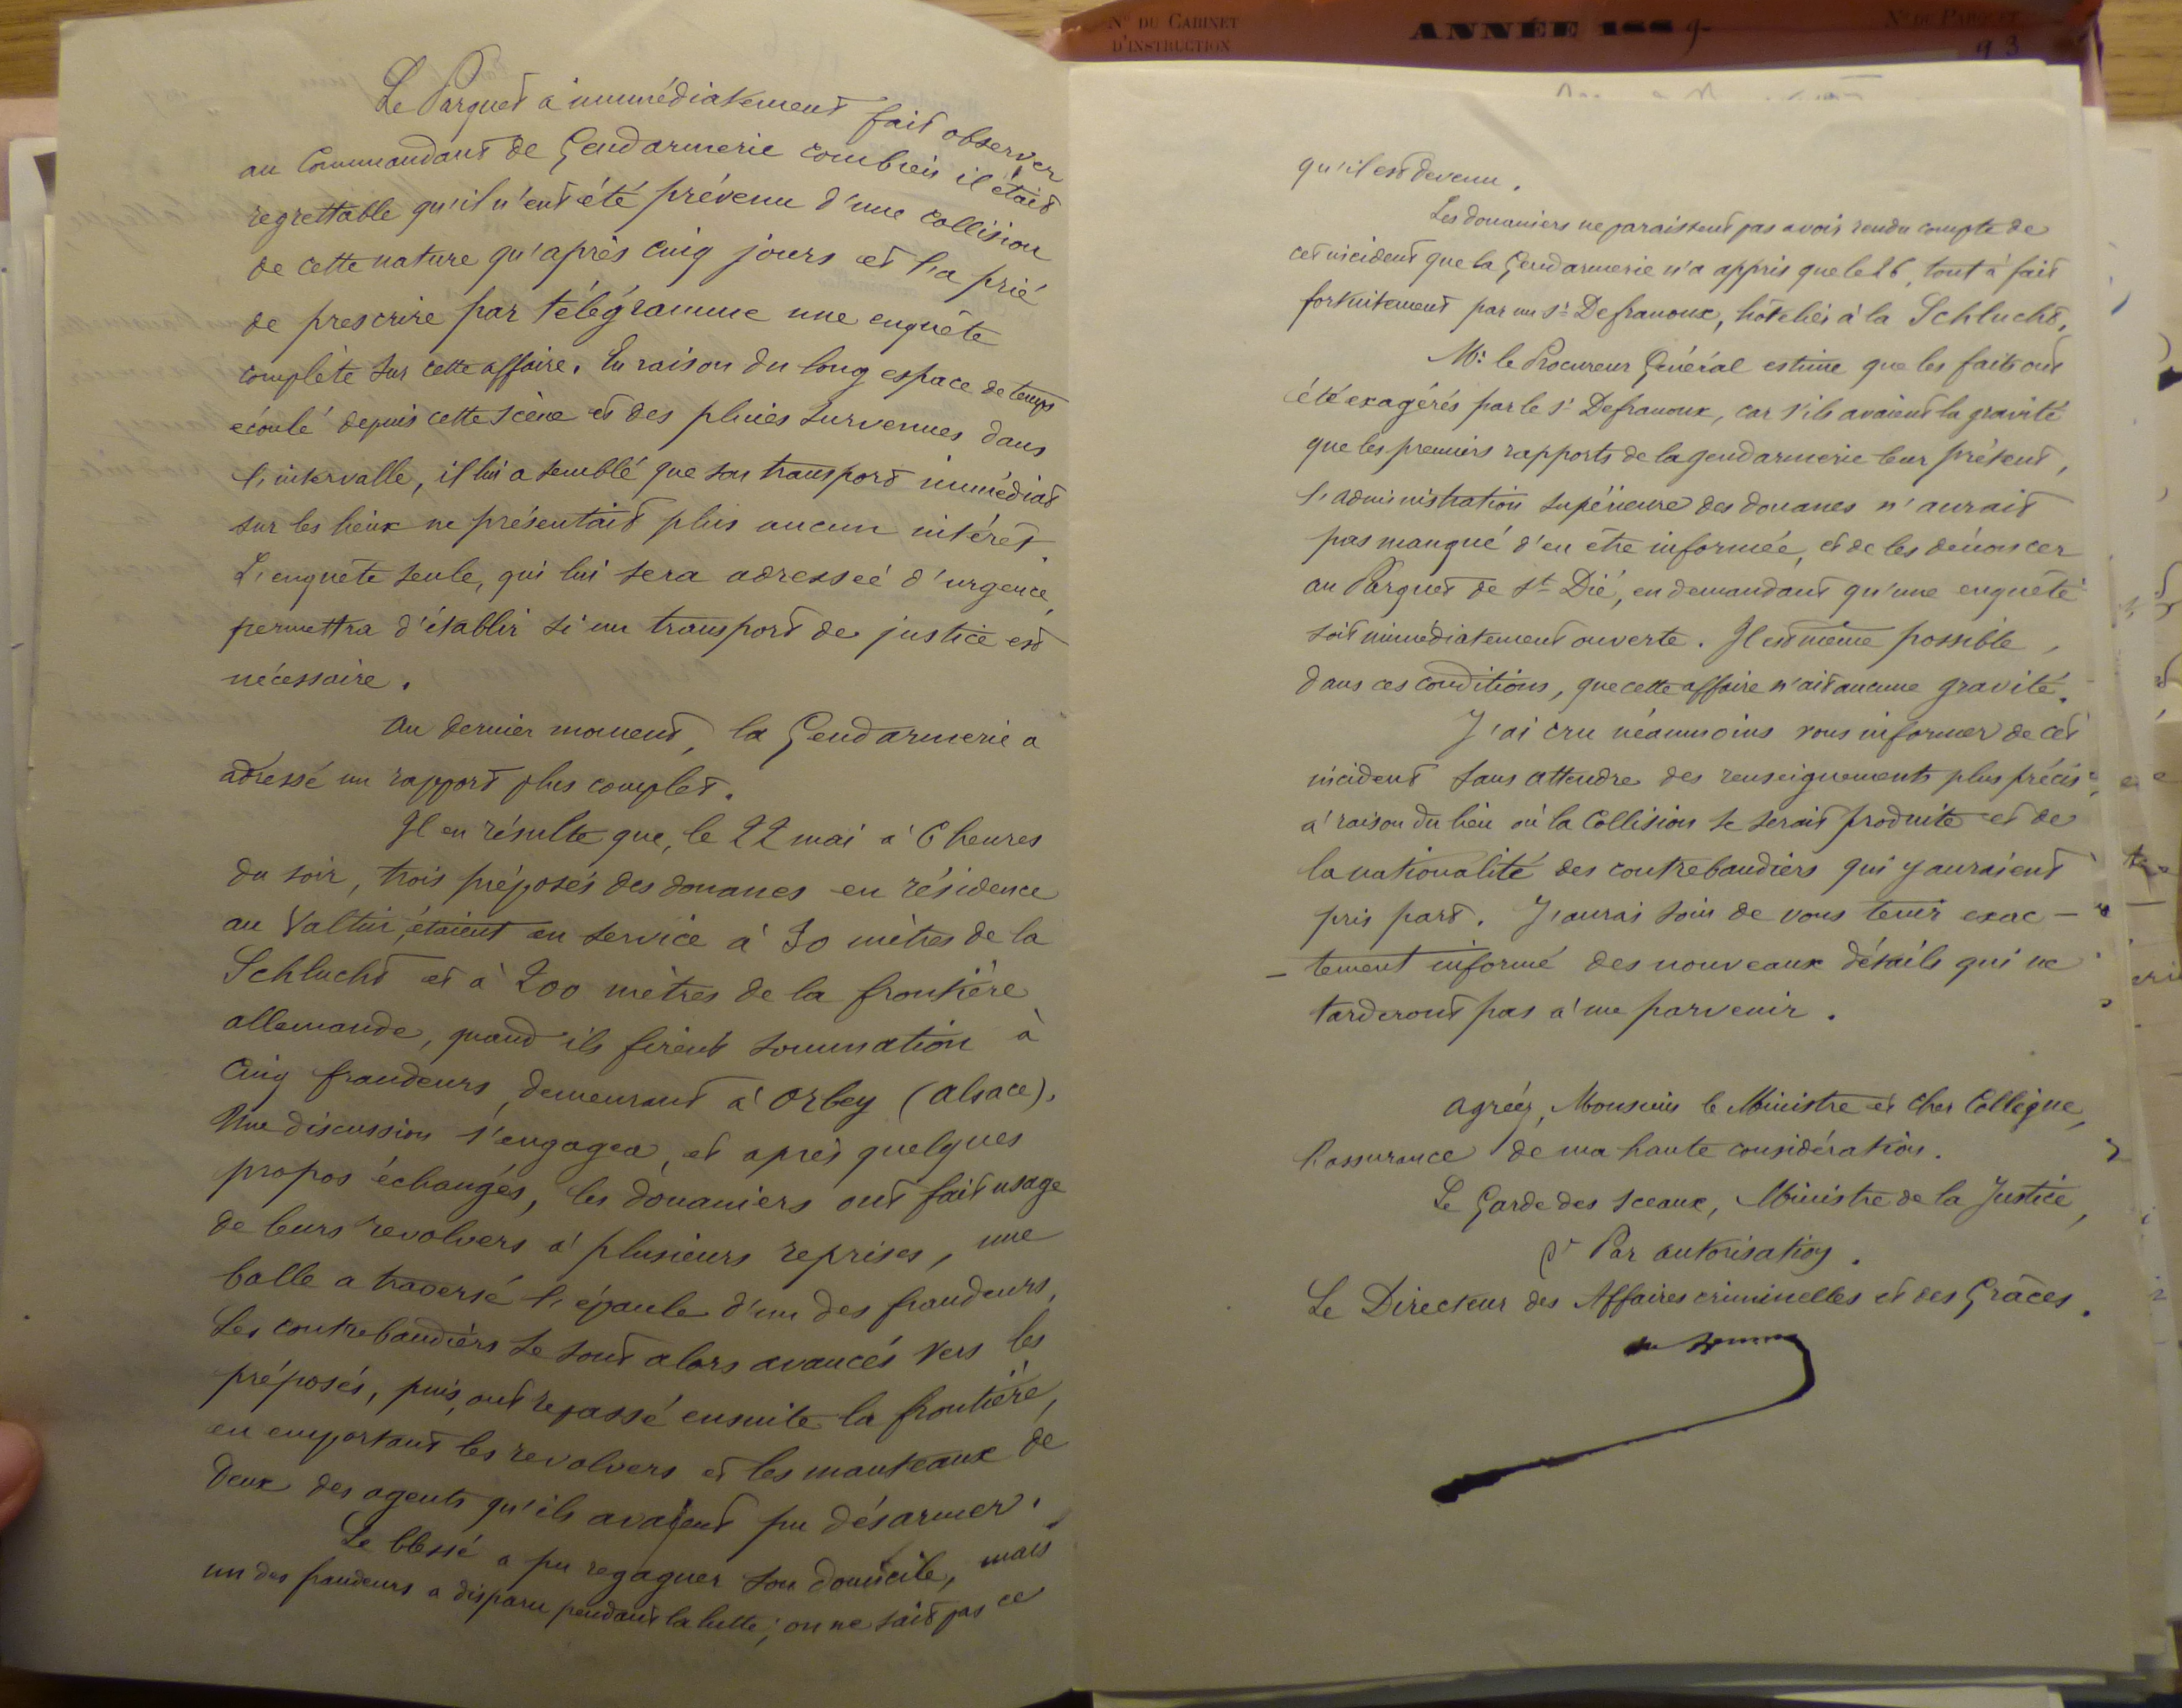 Le Parquet a immédiatement fait observer
au Commandant de Gendarmerie combien il était
regrettable qu'il n'eut été prévenu d'une collision
de cette nature qu'après cinq jours et l'a prié
de prescrire par télégramme une enquête
complète sur cette affaire. En raison du long espace de temps
écoulé depuis cette scène et des pluies survenues dans
l'intervalle, il lui a semblé que son transport immédiat
sur les lieux ne présentait plus aucun intérêt.
L'enquête seule, qui lui sera adressée d'urgence,
permettra d'établir si un transport de justice est
nécessaire.
Au dernier moment, la Gendarmerie a
adressé un rapport plus complet.
Il en résulte que, le 22 mai à 6 heures
du soir, trois préposés des douanes en résidence
au Valtin, étaient en service à 30 mètres de la
Schlucht et à 200 mètres de la frontière
allemande, quand ils firent sommation à
cinq fraudeurs demeurant à Orbey (Alsace).
Une discussion s'engagea, et après quelques
propos échangés, les douaniers ont fait usage
de leurs revolvers à plusieurs reprises, une
balle a traversé l'épaule d'un des fraudeurs.
Les contrebandiers se sont alors avancés vers les
préposés, puis, ont repassé ensuite la frontière,
en emportant les revolvers et les manteaux de
deux des agents qu'ils avaient pu désarmer.
Le blessé a pu regagner son domicile, mais
un des fraudeurs a disparu pendant la lutte; on ne sait pas ce
N° DU CABINET
D'INSTRUCTION
ANNÉE 1889
N° DU PARQUET
93
qu'il est devenu.
Les douaniers ne paraissent pas avoir rendu compte de
cet incident que la Gendarmerie n'a appris que le 26, tout à fait
fortuitement par un Sr Defranoux, hôtelier à la Schlucht.
Mr le Procureur Général estime que les faits ont
été exagérés par le Sr Defranoux, car s'ils avaient la gravité
que les premiers rapports de la gendarmerie leur prêtent,
l'administration supérieure des douanes n'aurait
pas manqué d'en être informée, et de les dénoncer
au Parquet de St Dié, en demandant qu'une enquête
soit immédiatement ouverte. Il est même possible,
dans ces conditions, que cette affaire n'ait aucune gravité.
J'ai cru néanmoins vous informer de cet
incident sans attendre des renseignements plus précis,
à raison du lieu où la collision se serait produite et de
la nationalité des contrebandiers qui y auraient
pris part. J'aurai soin de vous tenir exac-
-tement informé des nouveaux détails qui ne
tarderont pas à me parvenir.
Agréez, Monsieur le Ministre et cher Collègue,
l'assurance de ma haute considération.
Le Garde des Sceaux, Ministre de la Justice,
Pr Par autorisation.
Le Directeur des Affaires criminelles et des Grâces.